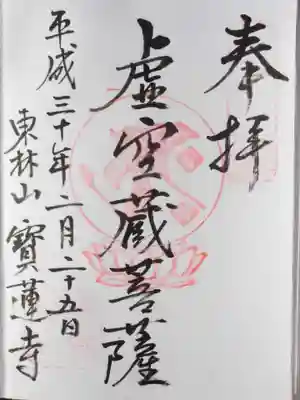 奉拝
虚空蔵菩薩
平成三十年二月二十五日
東林山 寶蓮寺